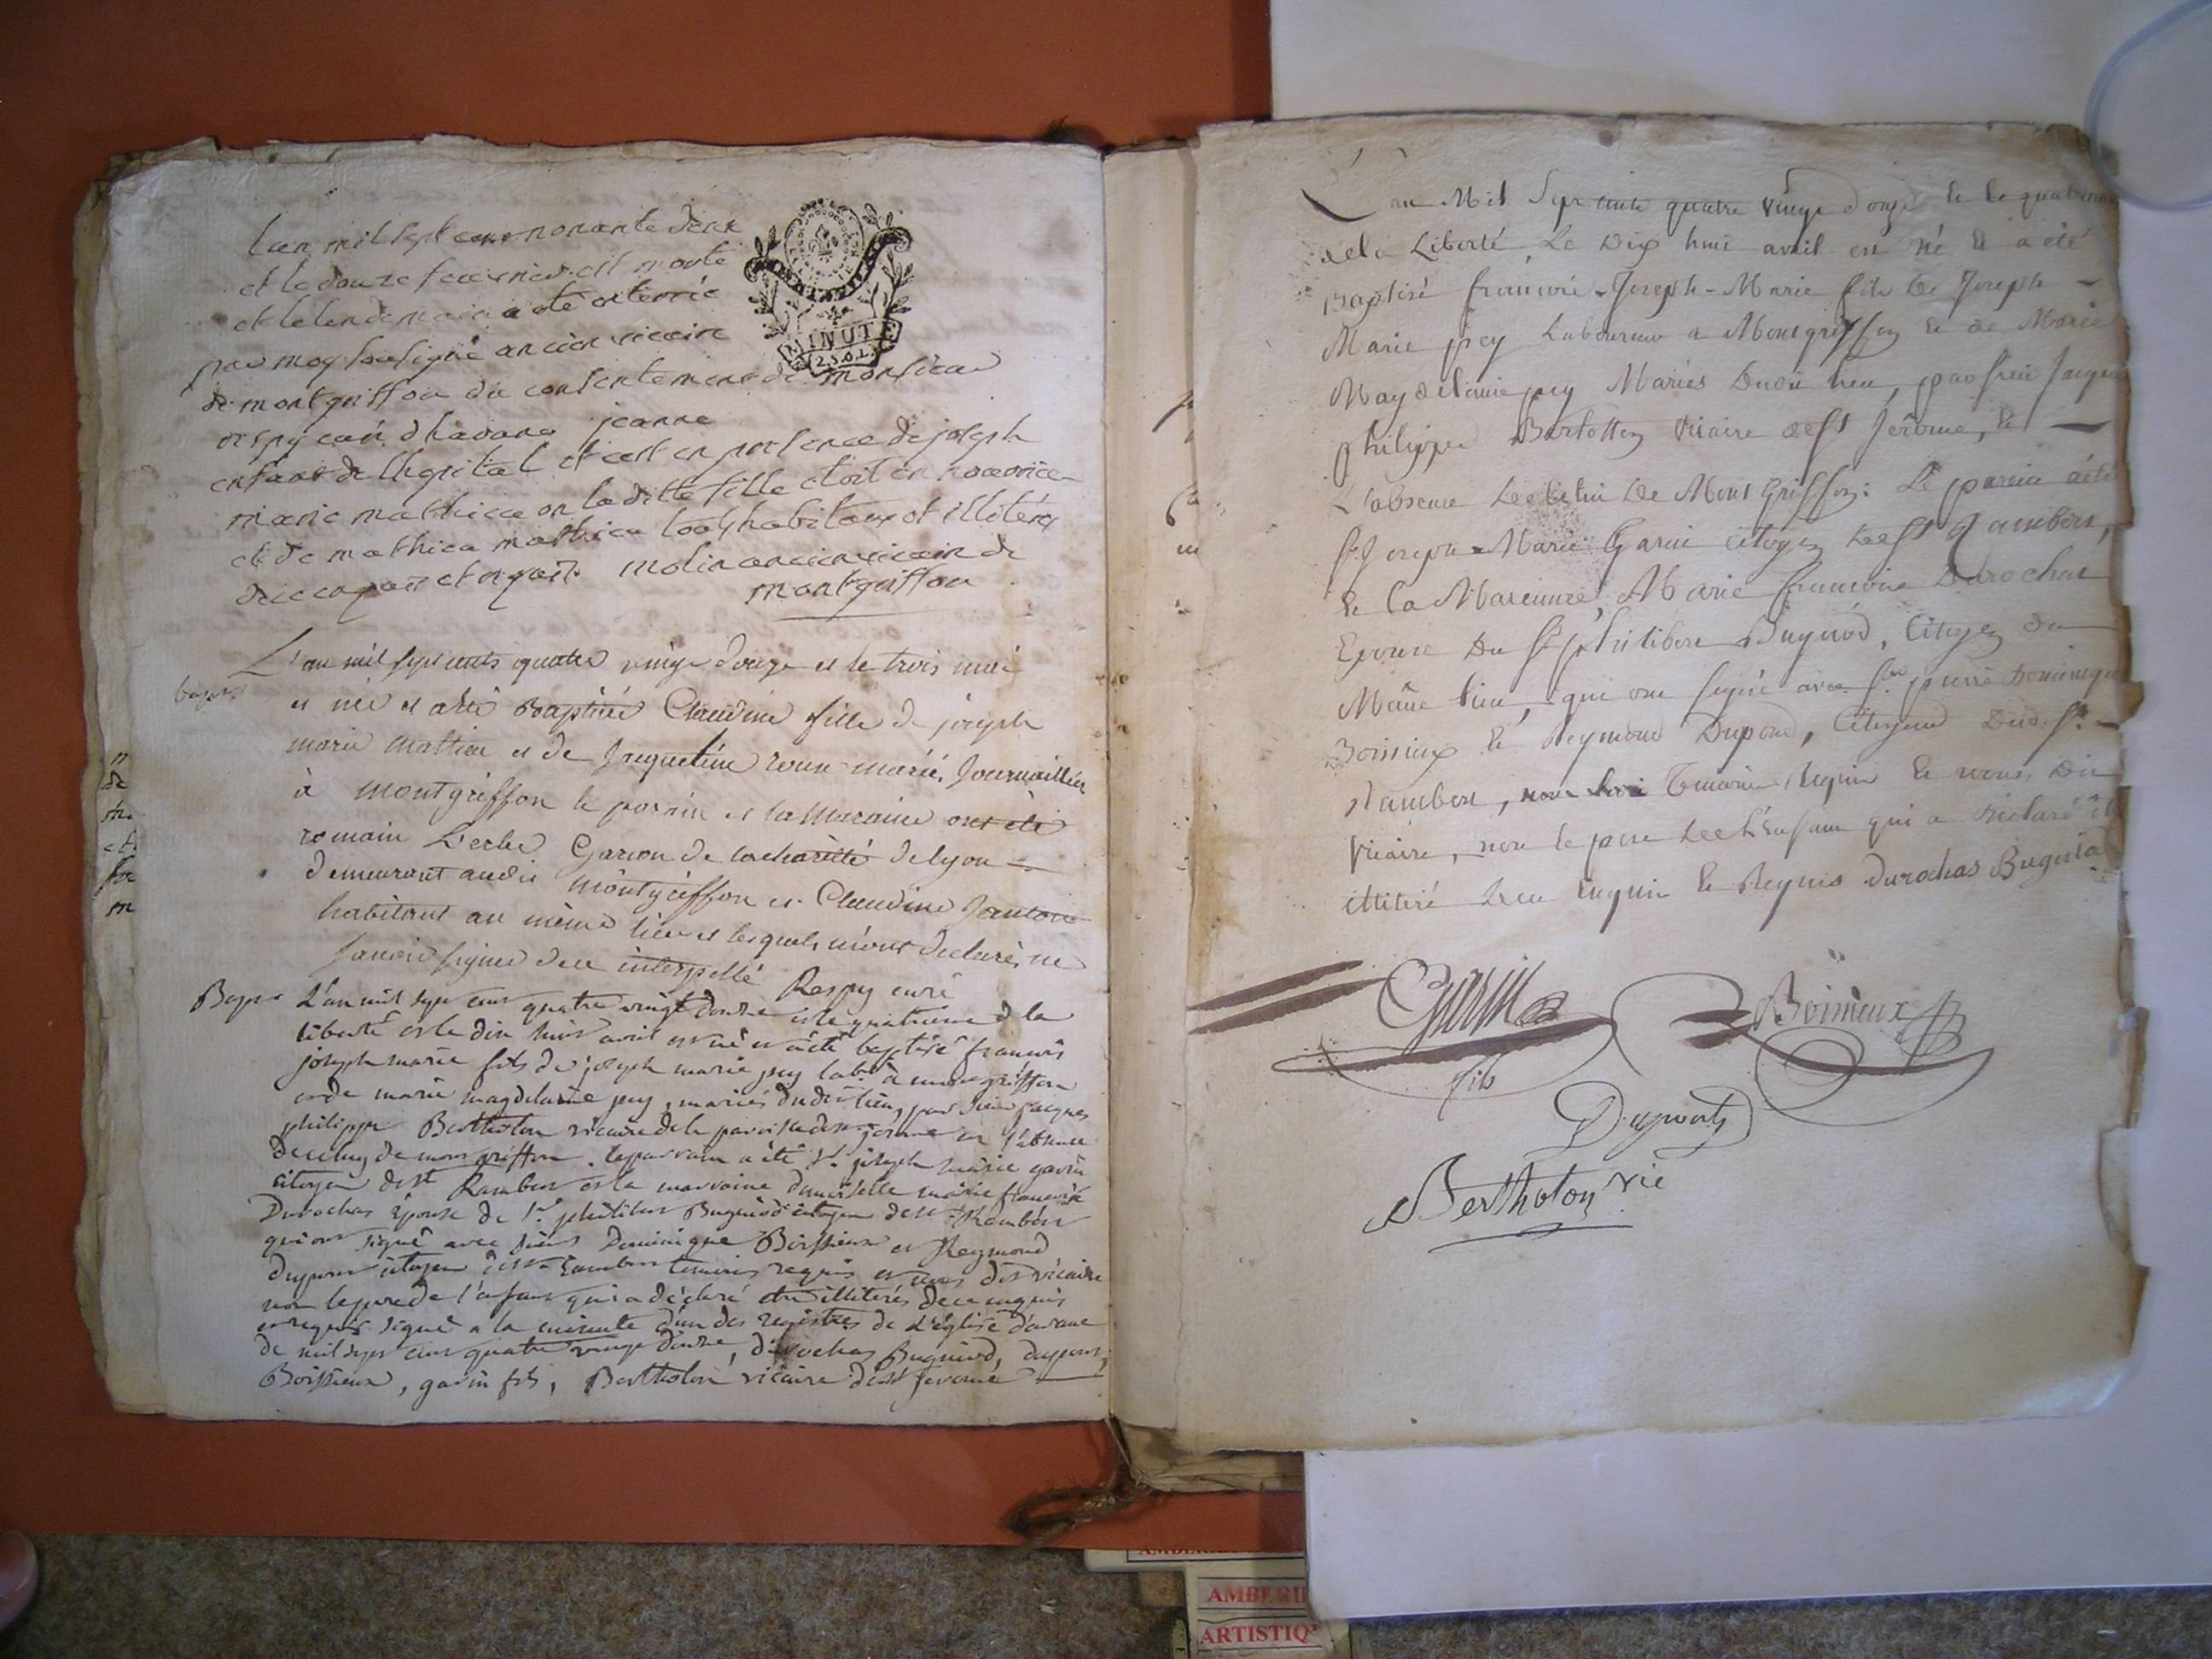 L'an mil sept cent nonante deux
et le douze feuvrier est morte
et le lendemain a été enterrée
par moy soussigné ancien vicaire
de montgriffon du consentement de monsieur
respy curé d'havane jeanne
enfant de lhopital et cest en presence de joseph
marie mathieu ou la ditte fille etoit en nourrice
et de mathieu mathieu tous habitans et illiterés
de ce enquis et requis. molin ancien vicaire de
montgriffon
MINUTE
2.S.O.L.
L'an mil sept cents quatre vingt douze et le trois mai
bapt
est née et a été Baptisée Claudine fille de joseph
marie Mathieu et de Jaqueline roux mariés Journailliers
à Montgriffon le parrin et la Maraine ont été
romain L'erbe Garcon de la charitté de lyon
demeurant audit Montgriffon et Claudine Jantone
habitant au même lieu et lesquels m'ont declarés ne
savoir signer de ce interpellé Respy curé
Bapt L'an mil sept cent quatre vingt douze et le quatrieme de la
liberté et le dix huit avril est né et a été baptisé francois
joseph marie fils de joseph marie pey lab. à montgriffon
et de marie magdelaine pey, mariés dudit lieu, par sieur jacques
philippe Bertholon vicaire de la paroisse de st jerome en l'absence
de celuy de mont griffon. le parrain a été sr. joseph marie garin
citoyen de st Rambert et la marraine demoiselle marie francoise
Durochas épouse de sr. philibert Bugniod citoyen de st Rambert
qui ont signé avec sieurs Dominique Boissieux et Reymond
dupont citoyen de st rambert temoins requis et nous dit vicaire
non le pere de l'enfant qui a déclaré etre illiterés de ce enquis
et requis signé a la minute d'un des registres de l'église d'arane
de mil sept cent quatre vingt douze, durochas Bugniod, dupont,
Boissieux, garin fils, Bertholon vicaire de st jerome
L'an Mil Sept cents quatre vingt douze et le quatrieme
de la Liberté, Le Dix huit avril est né et a été
Baptisé francois-Joseph-Marie fils de Joseph
Marie pey Laboureur a Montgriffon et de Marie
Magdelaine pey Mariés Dudit lieu, par sieur Jaques
philippe Bertollon Vicaire de st Jérome, en
L'absence de Celui de Mont Griffon: Le parain a été
Sr. Joseph-Marie Garin citoyen de St Rambert,
et la Maraine, Marie francoise Durochas
Epouse Du Sr. philibert Bugniod, Citoyen du
Même lieu, qui ont signé avec Srs pierre Dominique
Boissieux et Reymond Dupond, Citoyens Dud. St.
Rambert, Temoins Requis et nous, Dit
Vicaire, non le pere de l'Enfant qui a Déclaré être
illitéré De ce Enquis et Requis Durochas Bugniod
Garin
fils
Boissieux
Dupont
Bertholon vic
AMBERI
ARTISTIQ